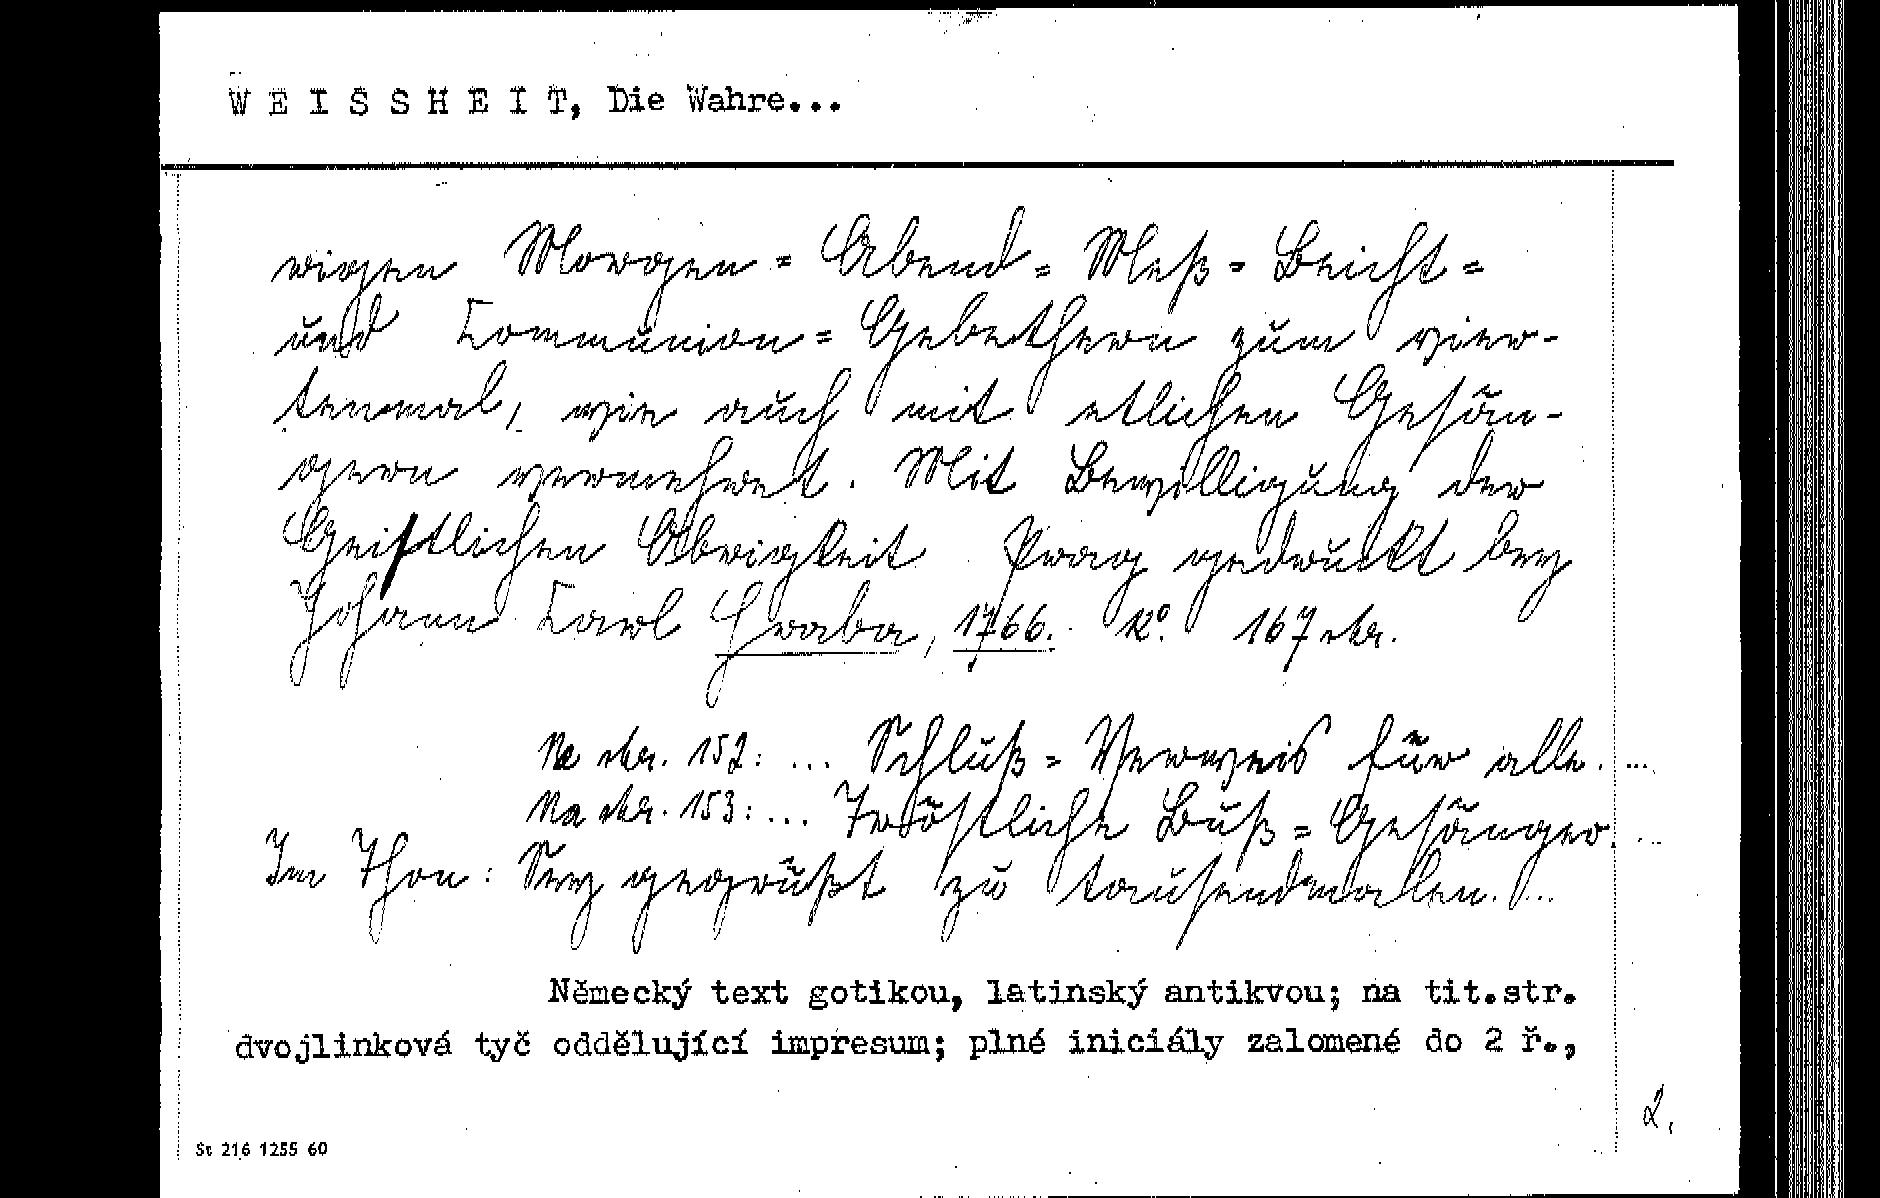 WEISSHEIT, Die Wahre...
rigen Morgen= Abend= Meß= Beicht=
und Communion= Gebethern zum vier-
tenmal, wie auch mit etlichen Gesän-
gern vermehret. Mit Bewilligung der
Geistlichen Obrigkeit Prag gedruckt bey
Johann Carl Hraba, 1766. 12°. 167 str.
Na str. 152: ... Schluß= Verweis für alle. ...
Na str. 153: ... Tröstliche Buß= Gesänger. ..
Im Thon: Sey gegrüßt zu tausendmalen. ...
Německý text gotikou, latinský antikvou; na tit.str.
dvojlinková tyč oddělující impresum; plné iniciály zalomené do 2 ř.,
2.
St 216 1255 60